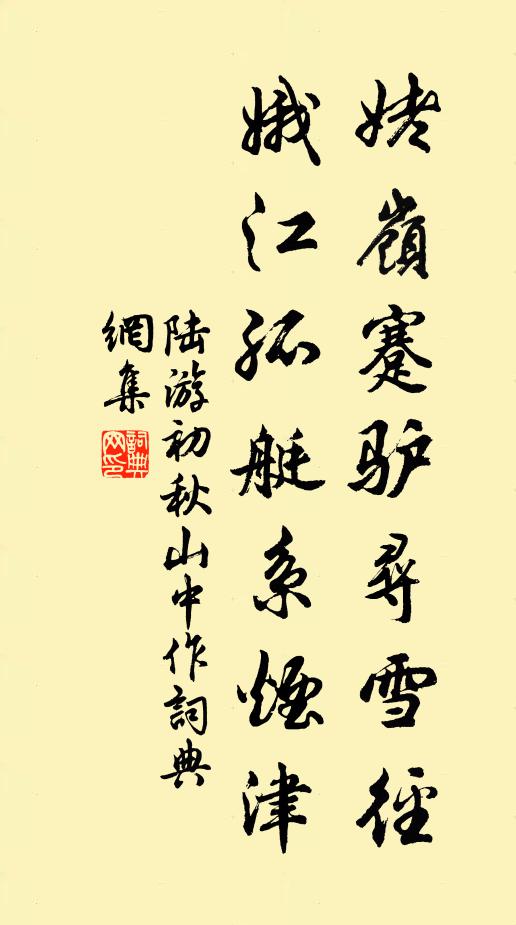 姥嶺蹇驴尋雪徑
娥江孤艇系煙津
陆游初秋山中作詞典
網集
詞典网印